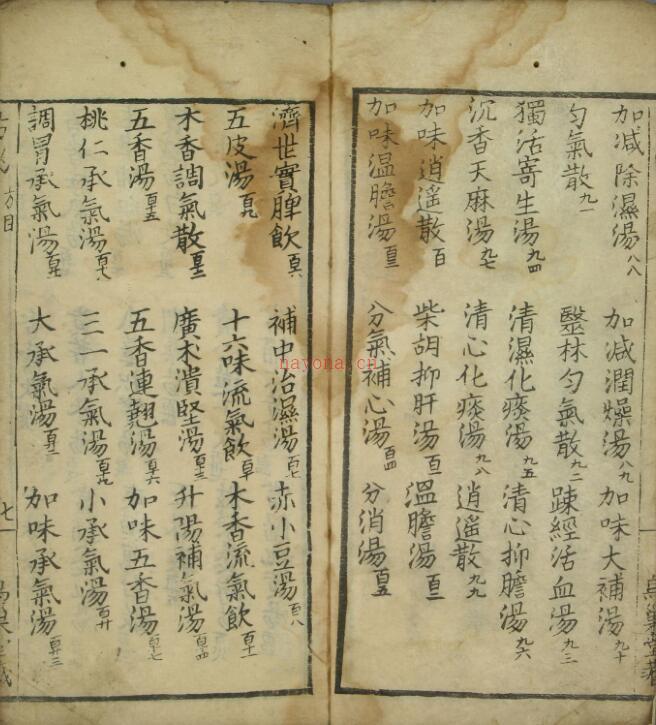 加减除濕湯八八 加减潤燥湯八九 加味大補湯九十
勻氣散九一 毉林勻氣散九二 踈經活血湯九三
獨活寄生湯九四 清濕化痰湯九五 清心抑膽湯九六
沉香天麻湯九七 清心化痰湯九八 逍遥散九九
加味逍遥散百 柴胡抑肝湯百一 溫膽湯百二
加味温膽湯百三 分氣補心湯百四 分消湯百五
濟世實脾飲百六 補中治濕湯百七 赤小豆湯百八
五皮湯百九 十六味流氣飲百十 木香流氣飲百十一
木香調氣散百十二 廣木潰堅湯百十三 升陽補氣湯百十四
五香湯百十五 五香連翹湯百十六 加味五香湯百十七
桃仁承氣湯百十八 三一承氣湯百十九 小承氣湯百廿
調胃承氣湯 大承氣湯 加味承氣湯百廿三
方目
七
nayona.cn